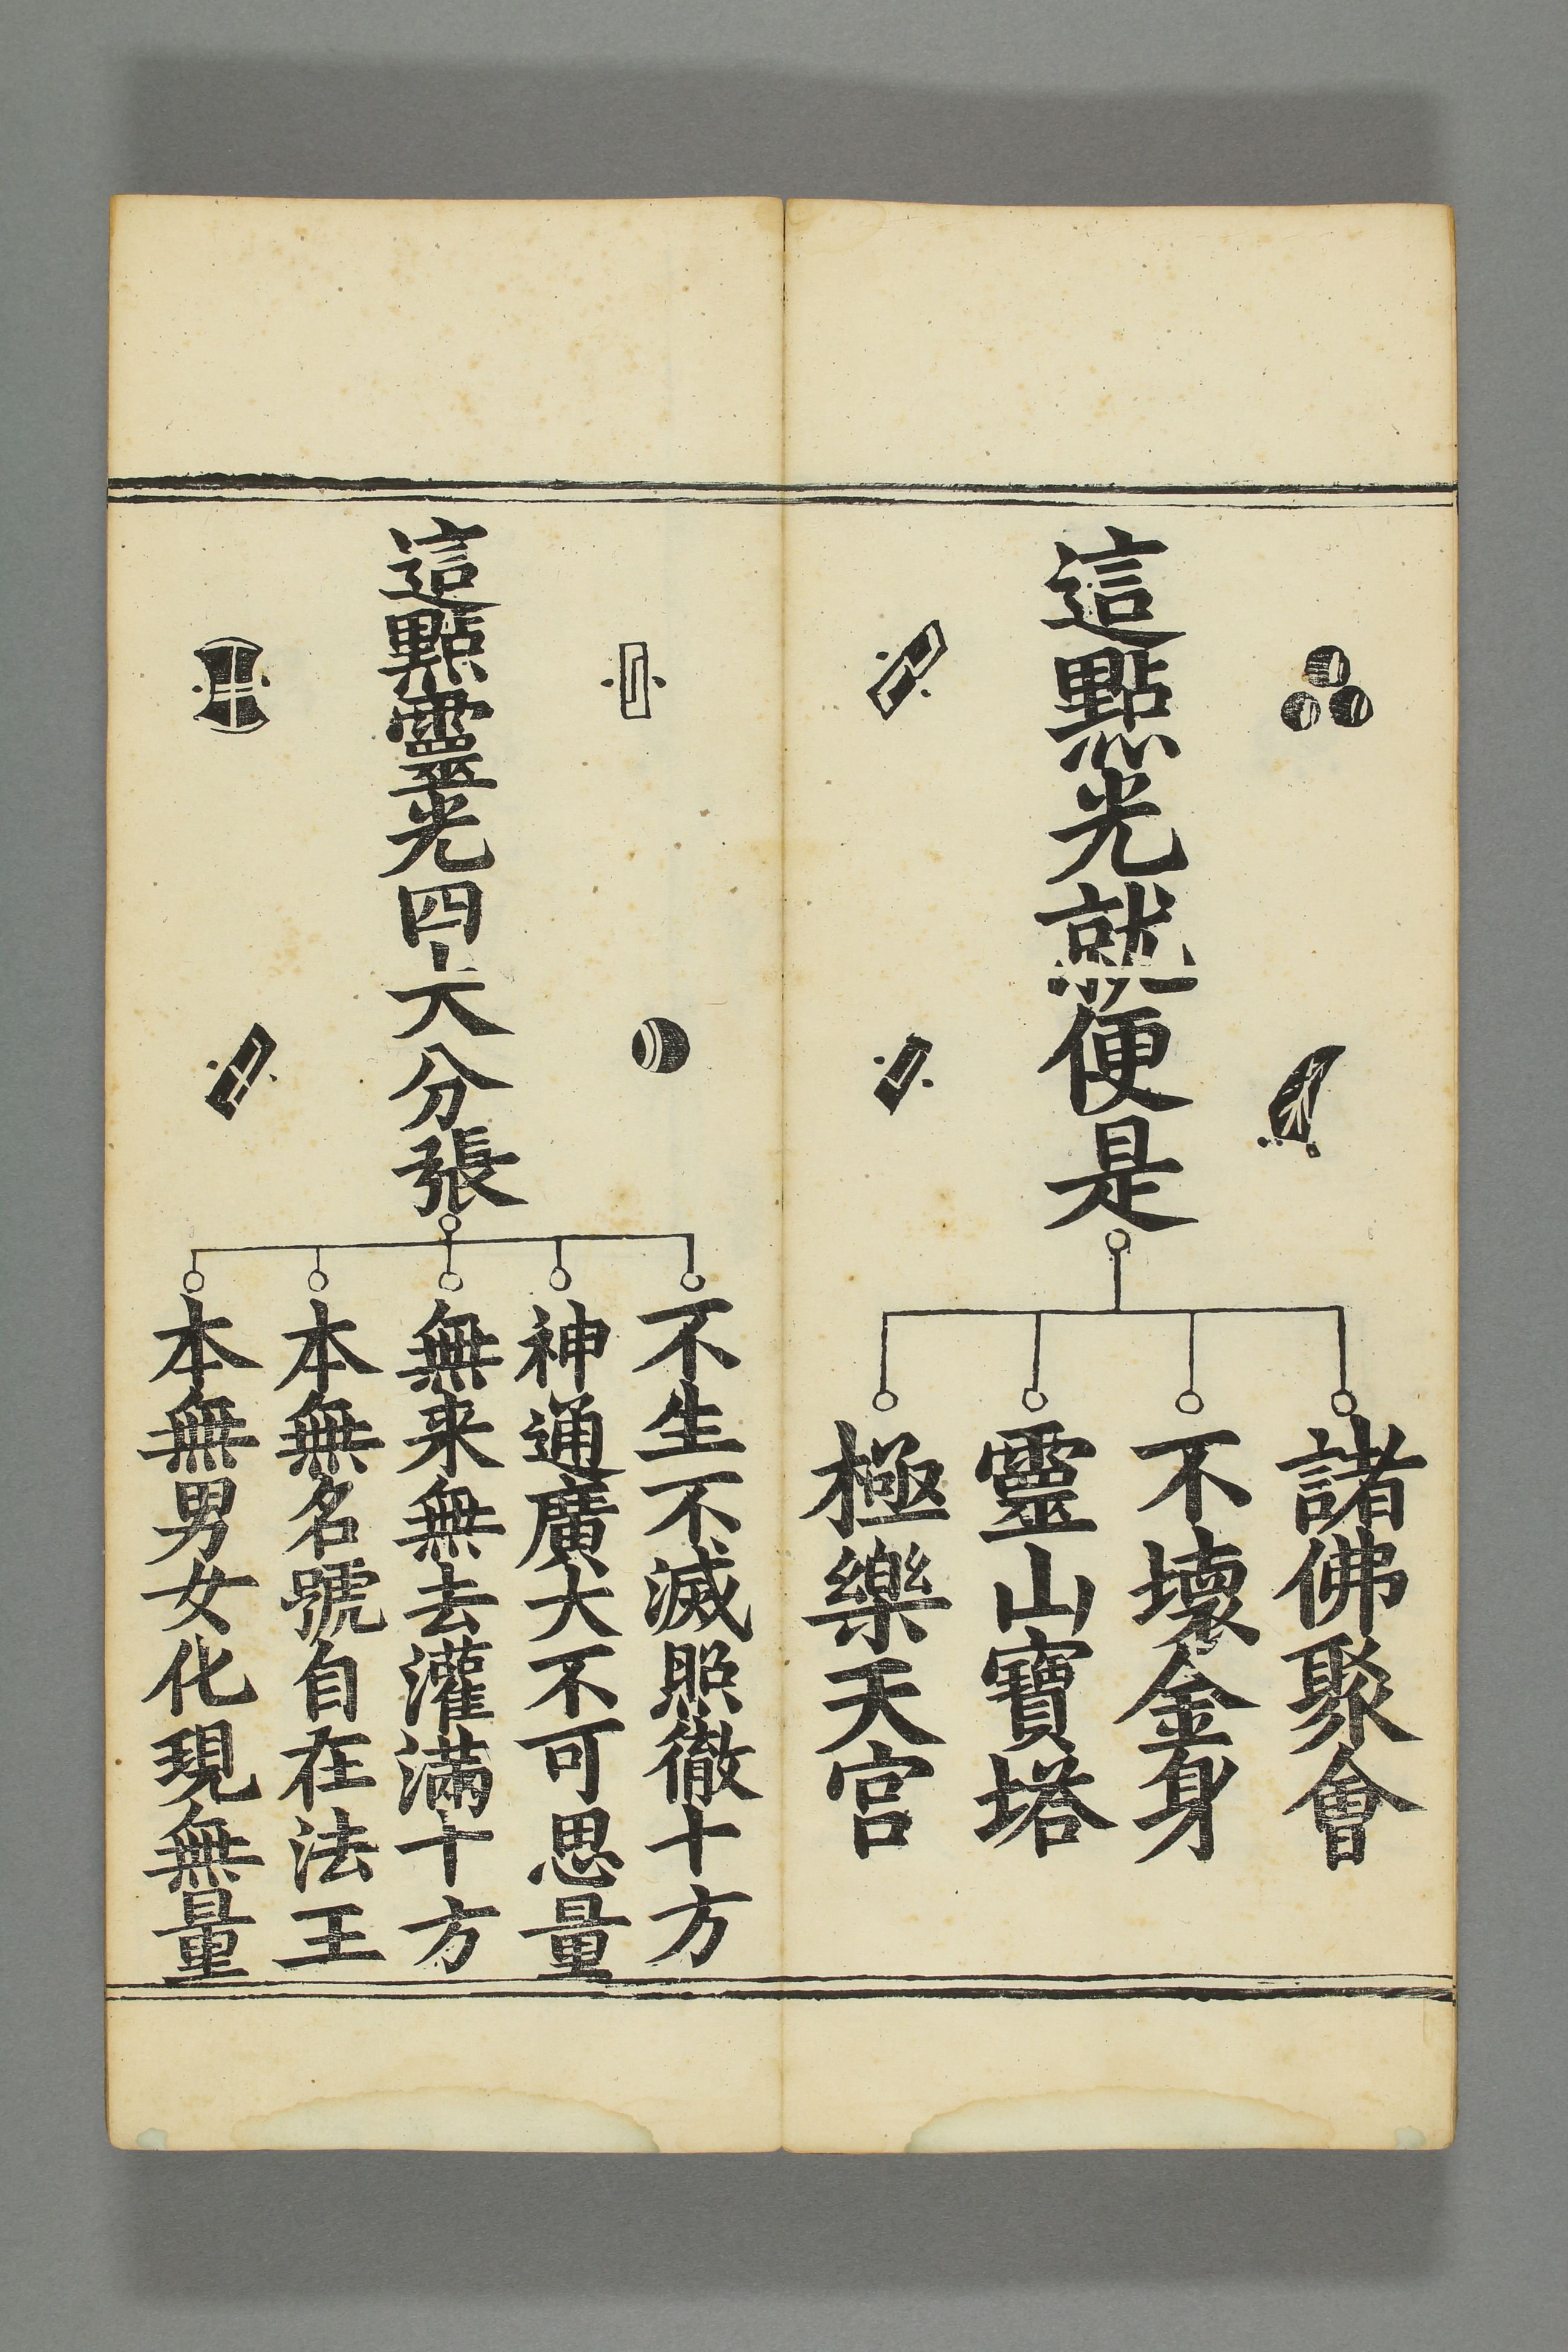 這點光就便是
諸佛聚會
不壞金身
靈山寶塔
極樂天宮
這點靈光四大分張
不生不滅照徹十方
神通廣大不可思量
無来無去灌滿十方
本無名號自在法王
本無男女化現無量